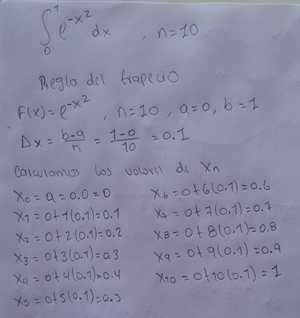 ∫₀¹ e^-x² dx , n=10
Regla del trapecio
F(x)= e^-x² , n=10, a=0, b=1
Δx = b-a/n = 1-0/10 = 0.1
Calculamos los valores de Xn
X0 = a = 0.0 = 0
X1 = 0+1(0.1)=0.1
X2 = 0+2(0.1)=0.2
X3 = 0+3(0.1)=0.3
X4 = 0+4(0.1)=0.4
X5 = 0+5(0.1)=0.5
X6 = 0+6(0.1)=0.6
X7 = 0+7(0.1)=0.7
X8 = 0+8(0.1)=0.8
X9 = 0+9(0.1)=0.9
X10 = 0+10(0.1)=1